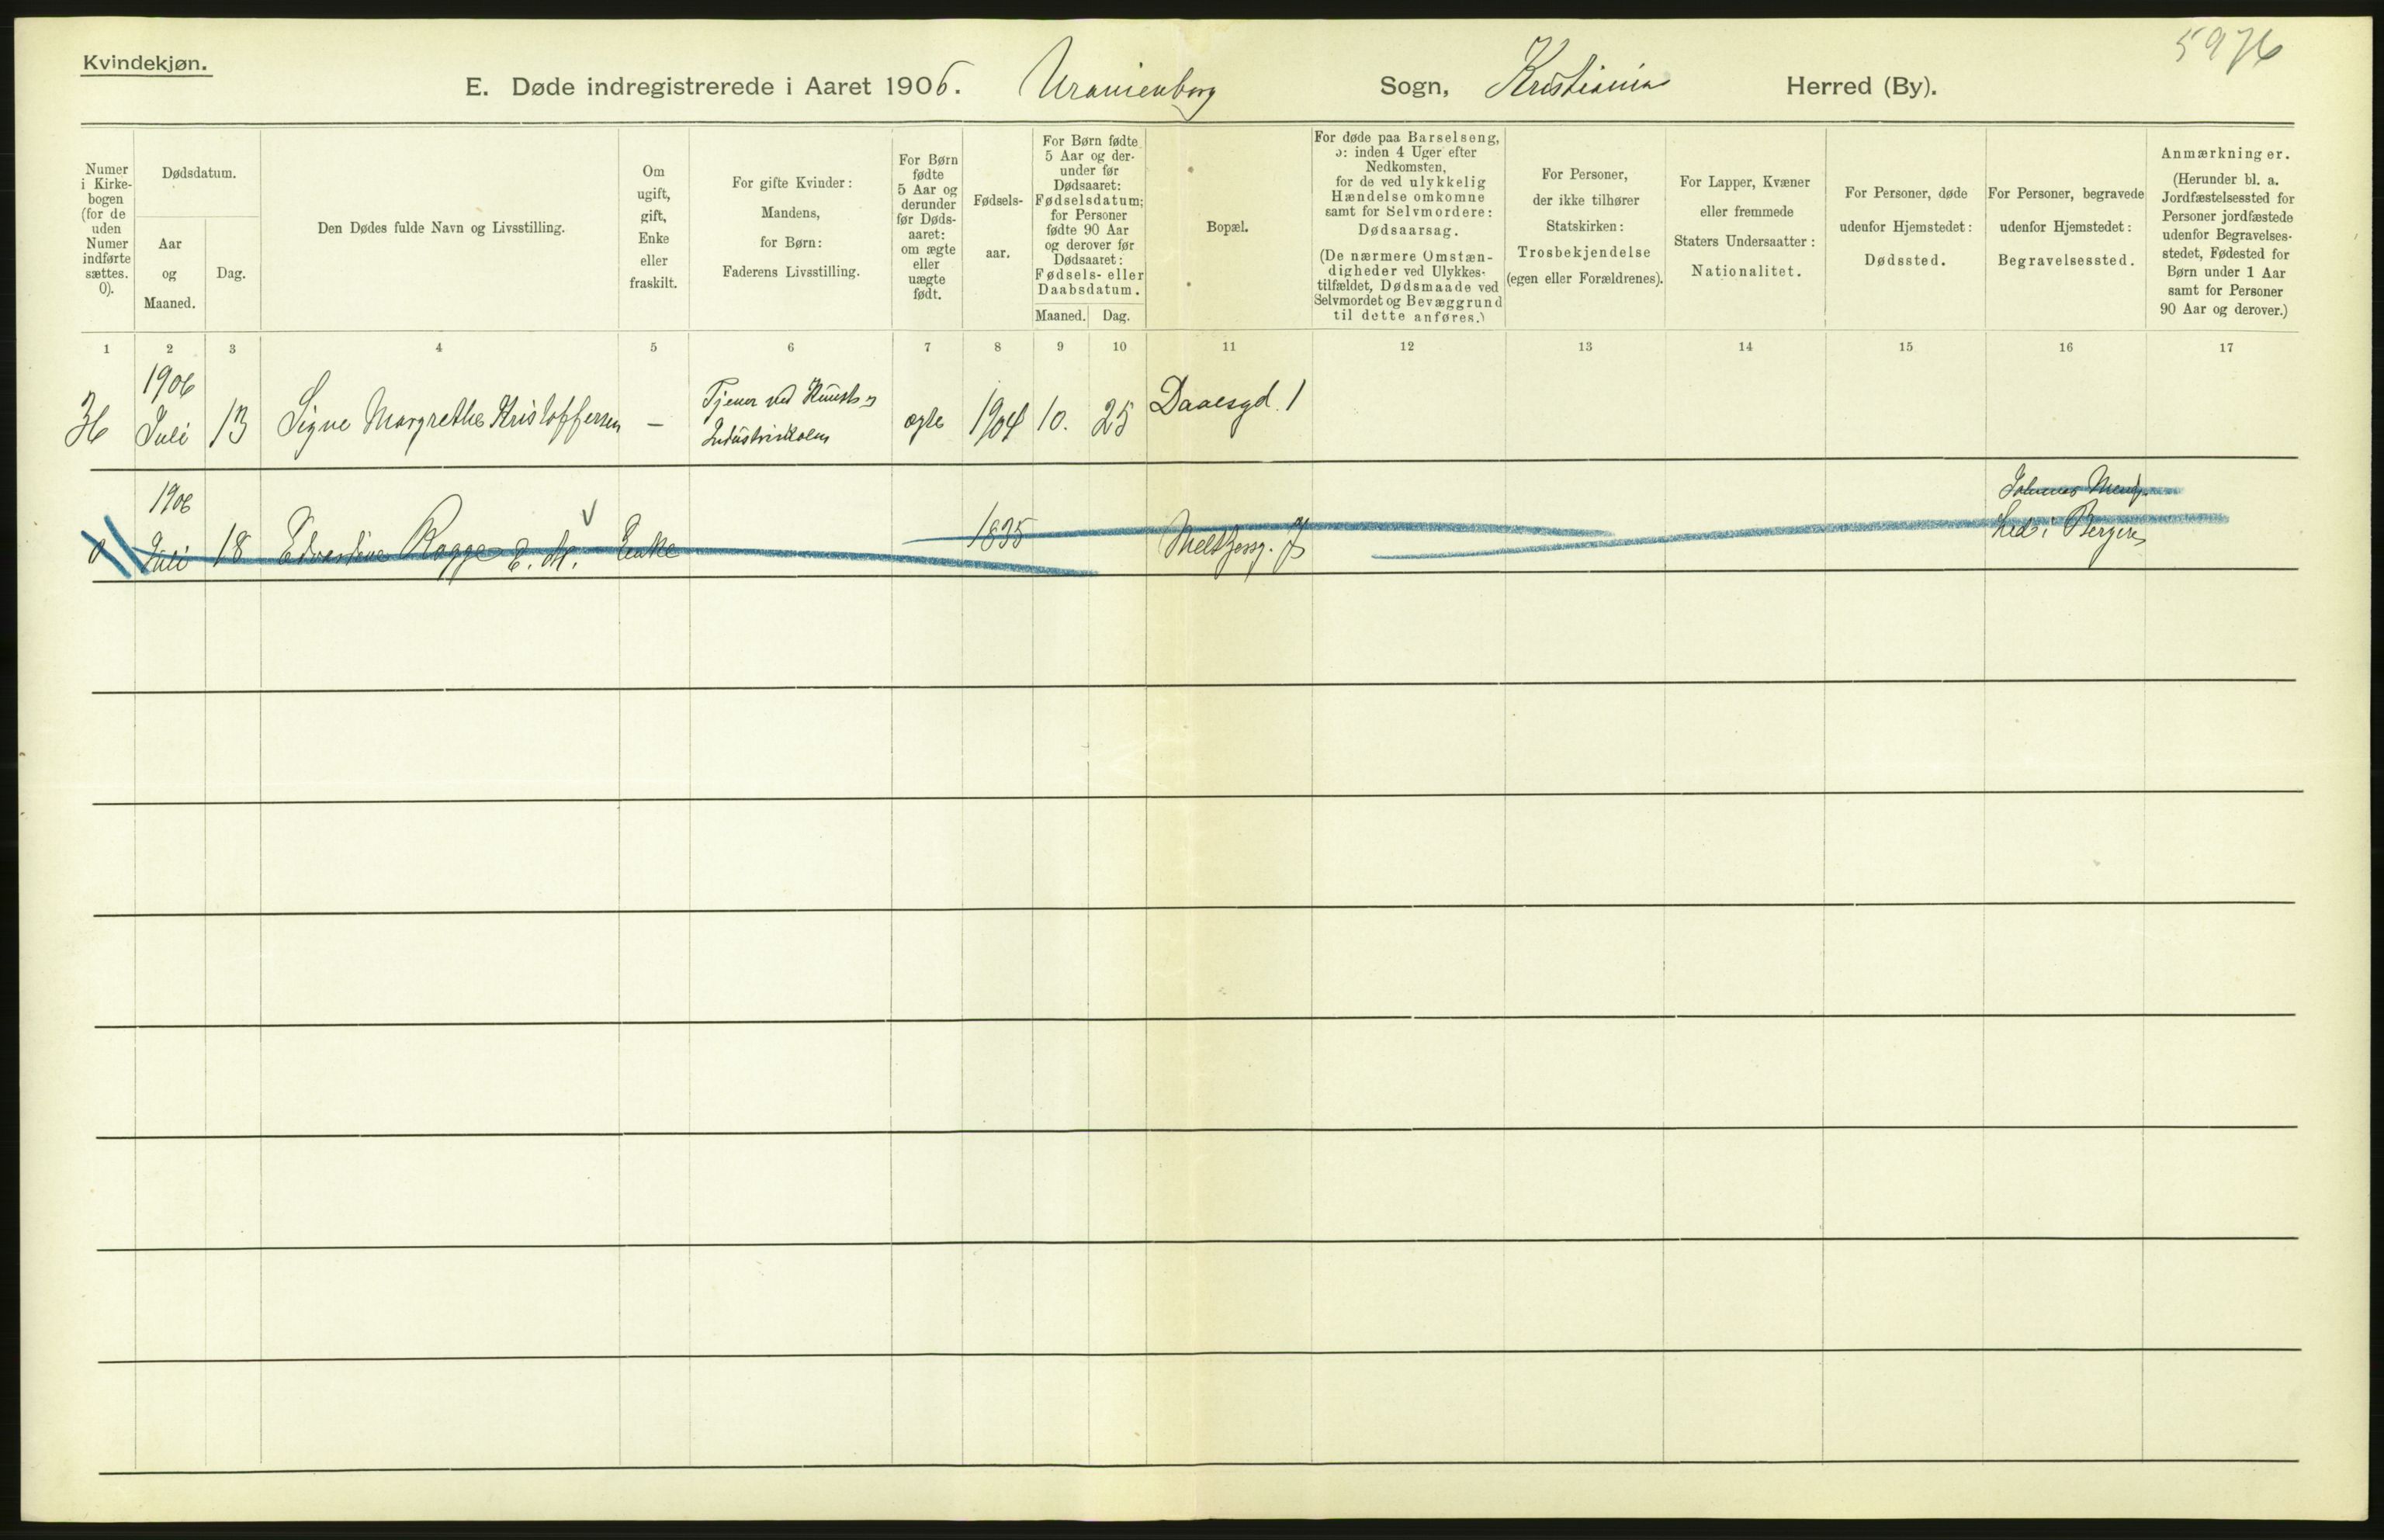 Kvindekjøn.
5976
E. Døde indregistrerede i Aaret 1906. Uranienborg Sogn, Kristiania Herred (By).
Numer
i Kirke-
bogen
(for de
uden
Numer
indførte
sættes.
0).
Dødsdatum.
Aar
og
Maaned.
Dag.
Den Dødes fulde Navn og Livsstilling.
Om
ugift,
gift,
Enke
eller
fraskilt.
For gifte Kvinder:
Mandens,
for Børn:
Faderens Livsstilling.
For Børn
fødte
5 Aar og
derunder
før Døds-
aaret:
om ægte
eller
uægte
født.
Fødsels-
aar.
For Børn fødte
5 Aar og der-
under før
Dødsaaret:
Fødselsdatum;
for Personer
fødte 90 Aar
og derover før
Dødsaaret:
Fødsels- eller
Daabsdatum.
Maaned. Dag.
Bopæl.
For døde paa Barselseng,
ɔ: inden 4 Uger efter
Nedkomsten,
for de ved ulykkelig
Hændelse omkomne
samt for Selvmordere:
Dødsaarsag.
(De nærmere Omstæn-
digheder ved Ulykkes-
tilfældet, Dødsmaade ved
Selvmordet og Bevæggrund
til dette anføres.)
For Personer,
der ikke tilhører
Statskirken:
Trosbekjendelse
(egen eller Forældrenes).
For Lapper, Kvæner
eller fremmede
Staters Undersaatter:
Nationalitet.
For Personer, døde
udenfor Hjemstedet:
Dødssted.
For Personer, begravede
udenfor Hjemstedet:
Begravelsessted.
Anmærkninger.
(Herunder bl. a.
Jordfæstelsessted for
Personer jordfæstede
udenfor Begravelses-
stedet, Fødested for
Børn under 1 Aar
samt for Personer
90 Aar og derover.)
1 2 3 4 5 6 7 8 9 10 11 12 13 14 15 16 17
1906
Juli 13 Signe Margrethe Kristoffersen — Tjener ved Kunst- og
Industriskolen
ægte 1904 10. 25 Daaesgd. 1
1906
0 Juli 18 Rogge E. M. Enke 1835 Meltzersg. 7
Johannes
i Bergen